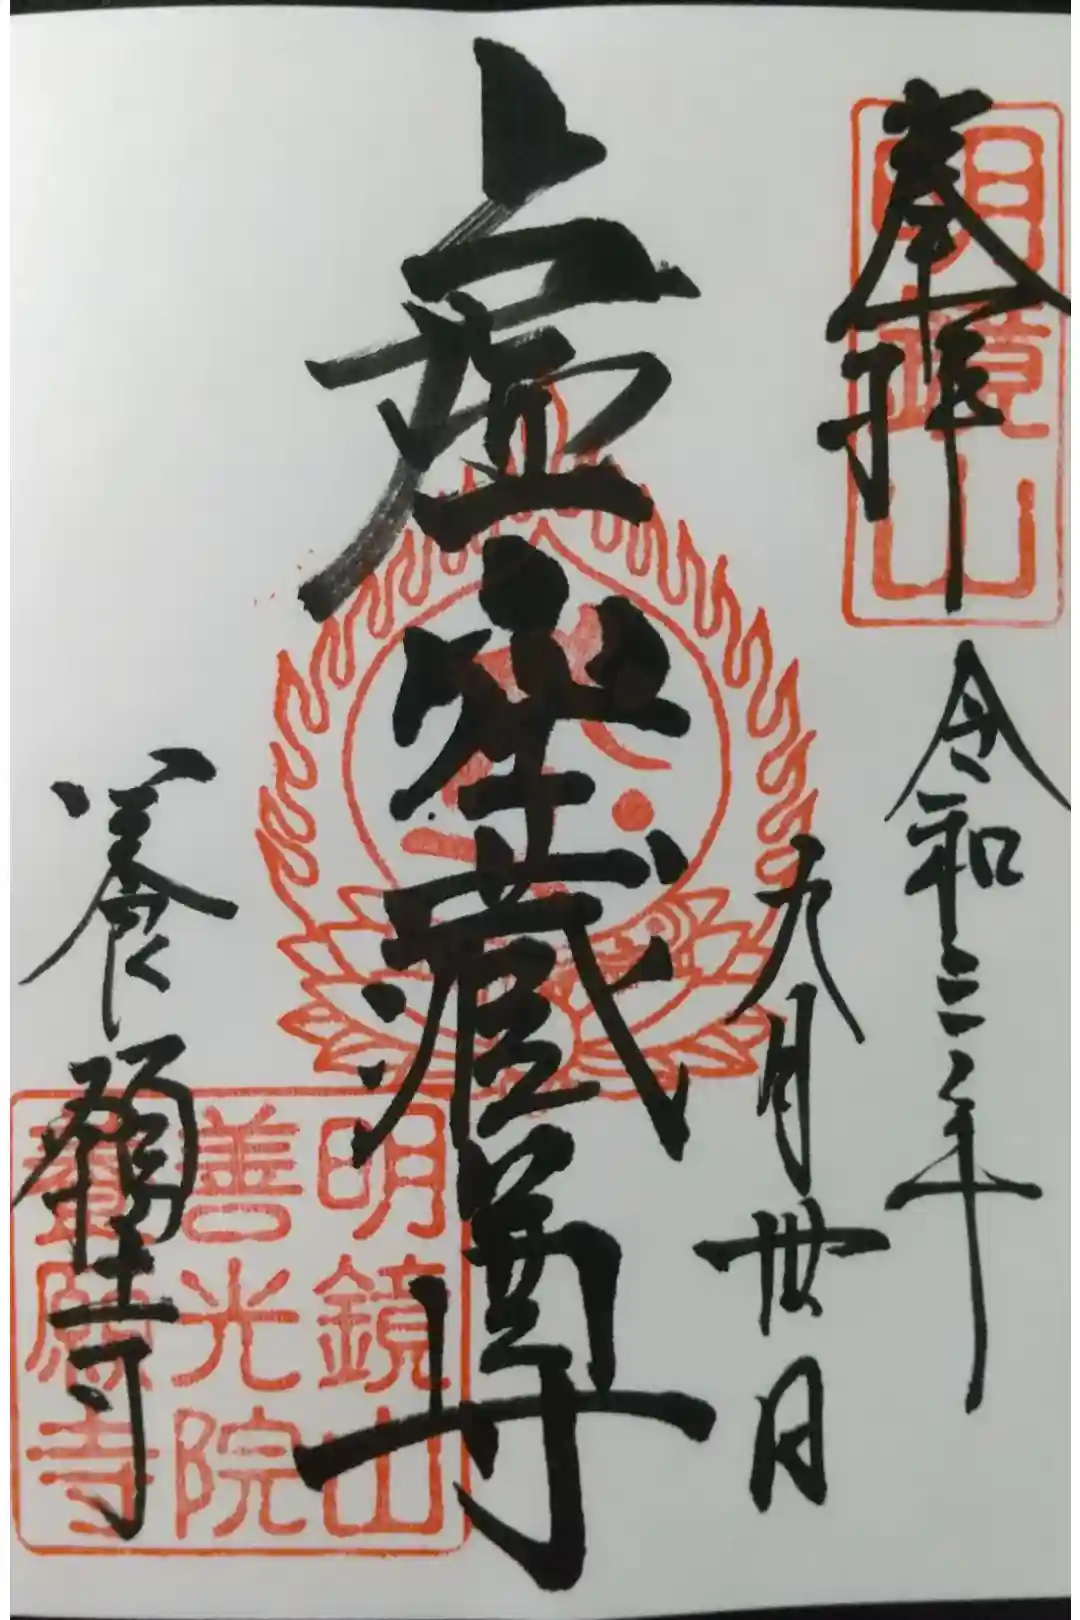 奉拝
明鏡山
令和三年
九月卅日
虚空蔵尊
養願寺
明鏡山
善光院
養願寺